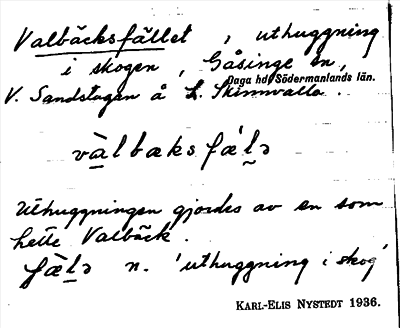 Valbäcksfället, uthuggning
i skogen, Gåsinge sn,
Daga hd, Södermanlands län.
V. Sandstugan å L. Skinnvalla.
và̱lbæksfæ´l̰ə
Uthuggningen gjordes av en som
hette Valbäck.
fæ̀l̰ə n. 'uthuggning i skog'
KARL-ELIS NYSTEDT 1936.